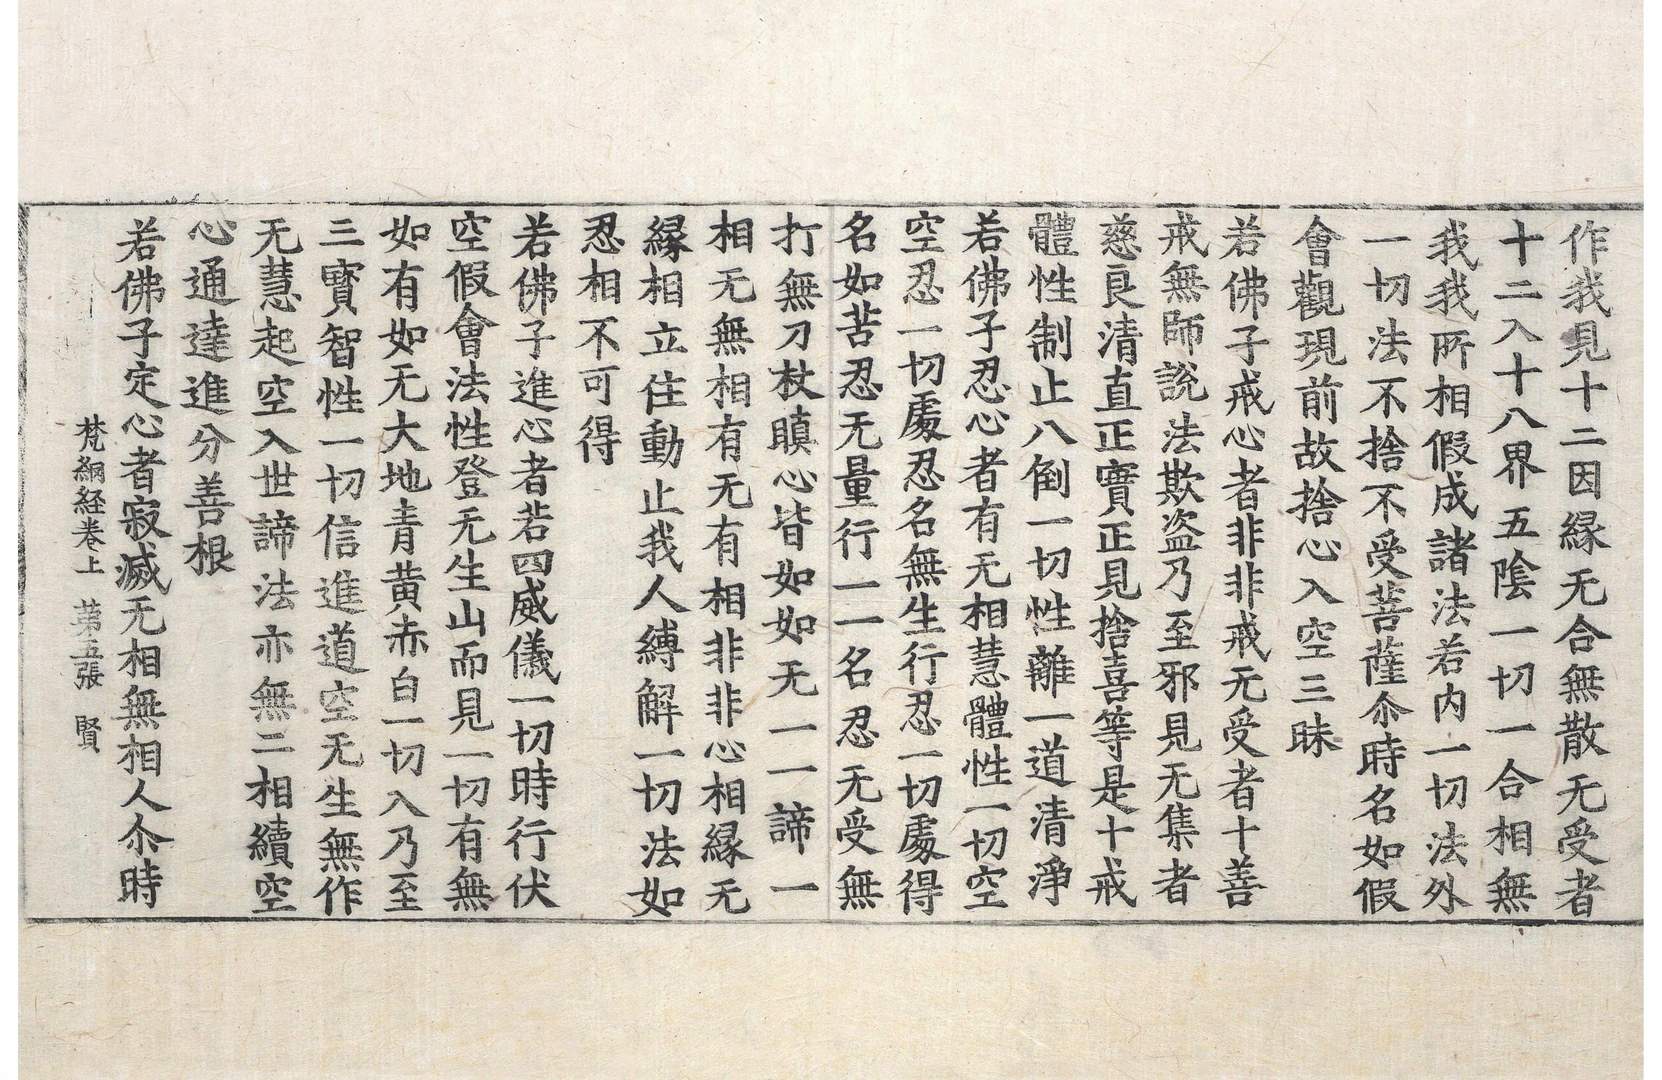 作我見十二因縁无合無散无受者
十二入十八界五陰一切一合相無
我我所相假成諸法若内一切法外
一切法不捨不受菩薩尒時名如假
會觀現前故捨心入空三昧
若佛子戒心者非非戒无受者十善
戒無師說法欺盜乃至邪見无集者
慈良清直正實正見捨喜等是十戒
體性制止八倒一切性離一道清淨
若佛子忍心者有无相慧體性一切空
空忍一切處忍名無生行忍一切處得
名如苦忍无量行一一名忍无受無
打無刀杖瞋心皆如如无一一諦一
相无無相有无有相非非心相縁无
縁相立住動止我人縛解一切法如
忍相不可得
若佛子進心者若四威儀一切時行伏
空假會法性登无生山而見一切有無
如有如无大地青黄赤白一切入乃至
三寶智性一切信進道空无生無作
无慧起空入世諦法亦無二相續空
心通達進分善根
若佛子定心者寂滅无相無相人尒時
梵網経卷上 苐五張 賢